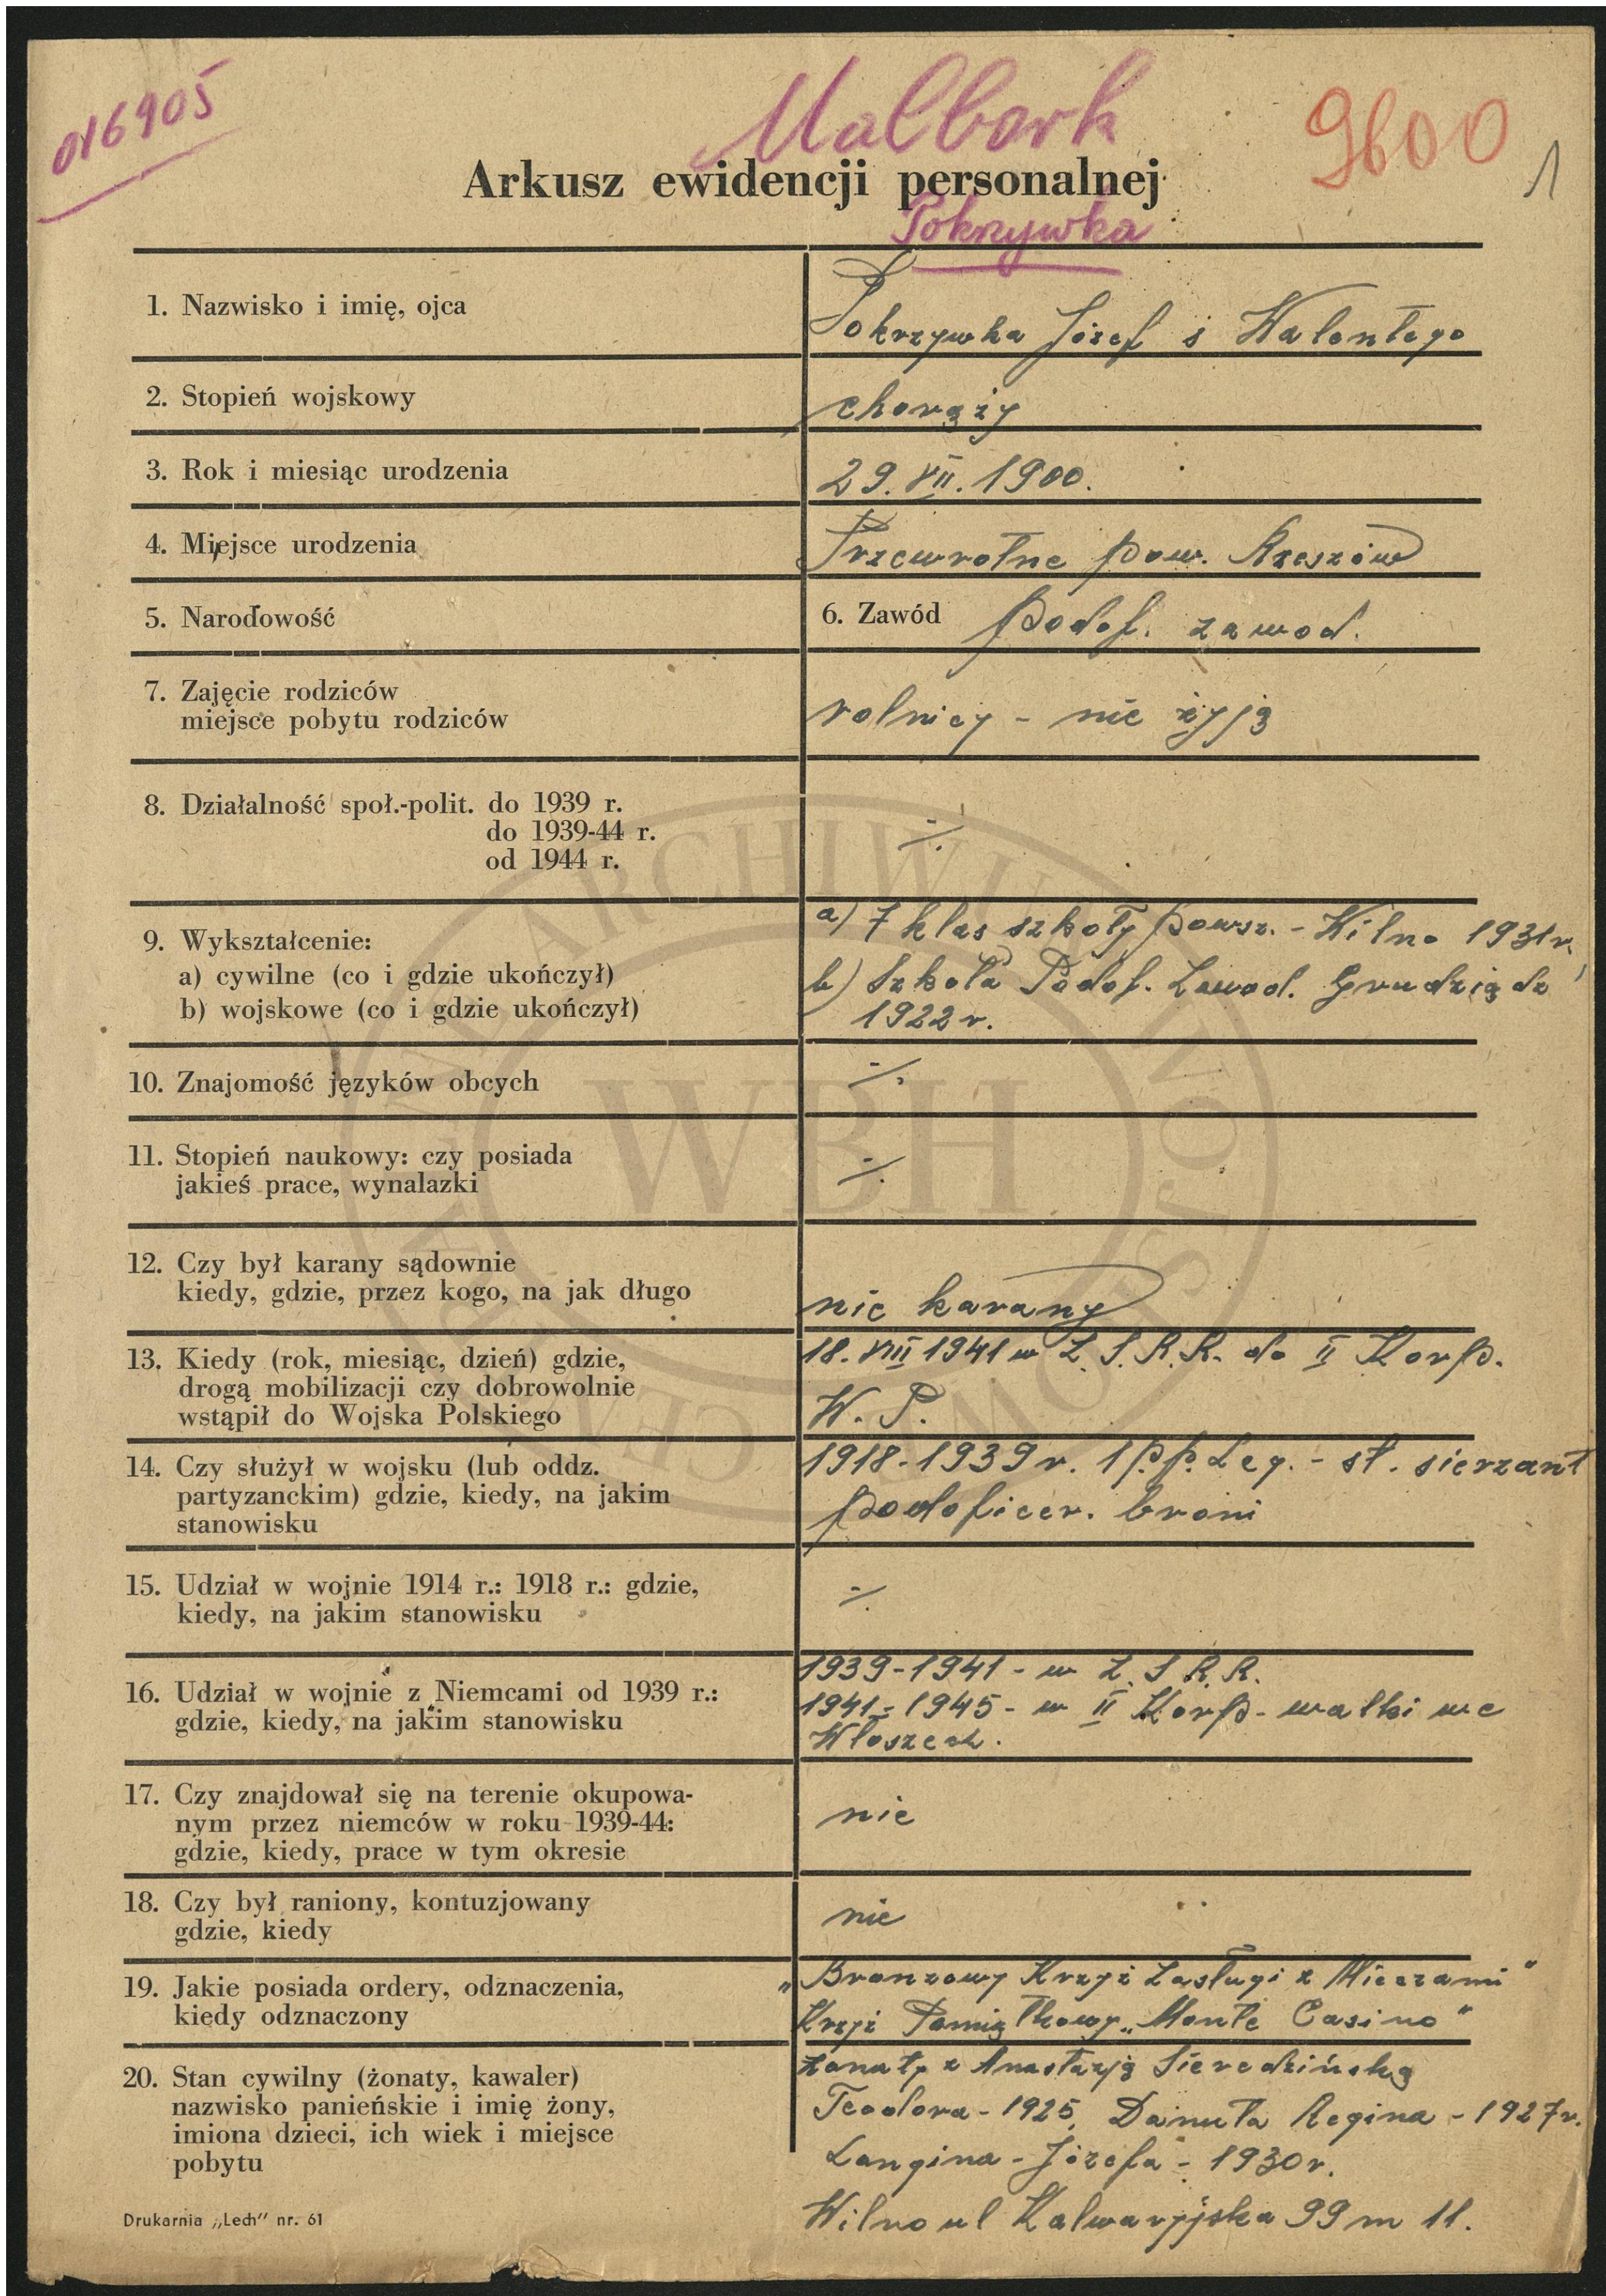 016905
Malbork
9600
1
Arkusz ewidencji personalnej
Pokrzywka
1. Nazwisko i imię, ojca
Pokrzywka Józef s Walentego
2. Stopień wojskowy
chorąży
3. Rok i miesiąc urodzenia
29. VII. 1900.
4. Miejsce urodzenia
Przewrotne pow. Rzeszów
5. Narodowość
6. Zawód podof. zawod.
7. Zajęcie rodziców
miejsce pobytu rodziców
rolnicy - nie żyją
8. Działalność społ.-polit. do 1939 r.
do 1939-44 r.
od 1944 r.
-/.
9. Wykształcenie:
a) cywilne (co i gdzie ukończył)
b) wojskowe (co i gdzie ukończył)
a) 7 klas szkoły powsz. - Wilno 1931 r.
b) Szkoła Podof. Zawod. Grudziądz
1922 r.
10. Znajomość języków obcych
-/.
11. Stopień naukowy: czy posiada
jakieś prace, wynalazki
-/.
12. Czy był karany sądownie
kiedy, gdzie, przez kogo, na jak długo
nie karany
13. Kiedy (rok, miesiąc, dzień) gdzie,
drogą mobilizacji czy dobrowolnie
wstąpił do Wojska Polskiego
18. VIII 1941 w Z. S. R. R. do II Korp.
W. P.
14. Czy służył w wojsku (lub oddz.
partyzanckim) gdzie, kiedy, na jakim
stanowisku
1918-1939 r. 1 p.p. Leg. - st. sierzant
podoficer. broni
15. Udział w wojnie 1914 r.: 1918 r.: gdzie,
kiedy, na jakim stanowisku
-/.
16. Udział w wojnie z Niemcami od 1939 r.:
gdzie, kiedy, na jakim stanowisku
1939-1941 - w Z. S R. R.
1941-1945 - w II Korp - walki we
Włoszech.
17. Czy znajdował się na terenie okupowa-
nym przez niemców w roku 1939-44:
gdzie, kiedy, prace w tym okresie
nie
18. Czy był raniony, kontuzjowany
gdzie, kiedy
nie
19. Jakie posiada ordery, odznaczenia,
kiedy odznaczony
„Bronzowy Krzyż Zasługi z Mieczami"
Krzyż Pamiątkowy „Monte Casino"
20. Stan cywilny (żonaty, kawaler)
nazwisko panieńskie i imię żony,
imiona dzieci, ich wiek i miejsce
pobytu
żonaty z Anastazją Sieredzińską
Teodora - 1925, Danuta Regina - 1927 r.
Longina - Józefa - 1930 r.
Wilno ul Kalwaryjska 99 m 11.
Drukarnia „Lech" nr. 61
WBH